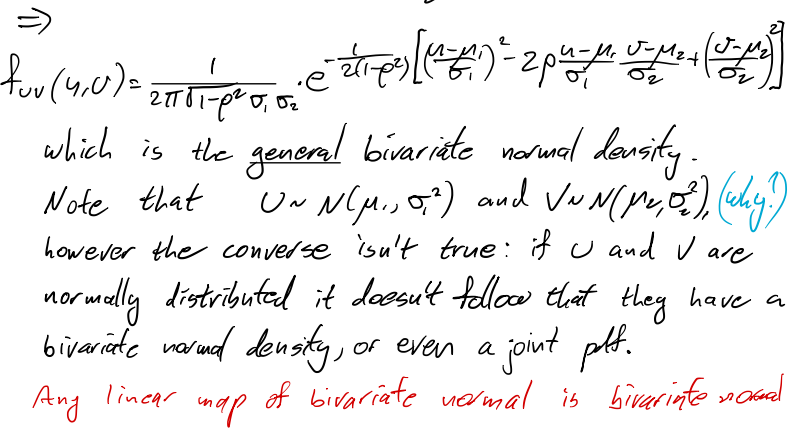 ⇒
f_UV(u,v) = 1/(2π√(1-ρ²) σ₁ σ₂) · e^(-1/(2(1-ρ²)) [((u-μ₁)/σ₁)² - 2ρ (u-μ₁)/σ₁ (v-μ₂)/σ₂ + ((v-μ₂)/σ₂)²])
which is the general bivariate normal density.
Note that U ~ N(μ₁, σ₁²) and V ~ N(μ₂, σ₂²), (why?)
however the converse isn't true: if U and V are
normally distributed it doesn't follow that they have a
bivariate normal density, or even a joint pdf.
Any linear map of bivariate normal is bivariate normal